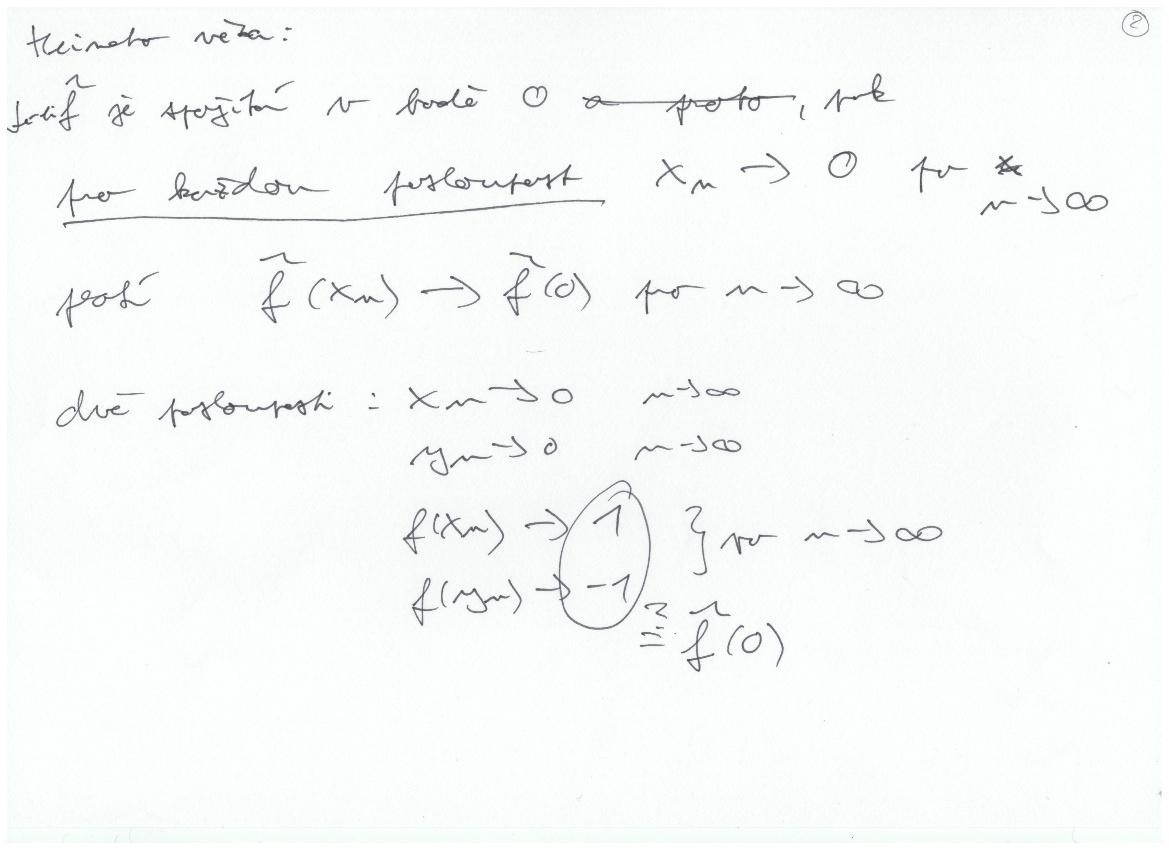 ②
Heineho věta:
Je-li f̃ je spojitá v bodě 0 a proto, pak
pro každou posloupost x_n → 0 pro x n → ∞
platí f̃(x_n) → f̃(0) pro n → ∞
dvě poslouposti : x_n → 0 n → ∞
y_n → 0 n → ∞
f(x_n) → 1
f(y_n) → -1 } pro n → ∞
f̃(0)